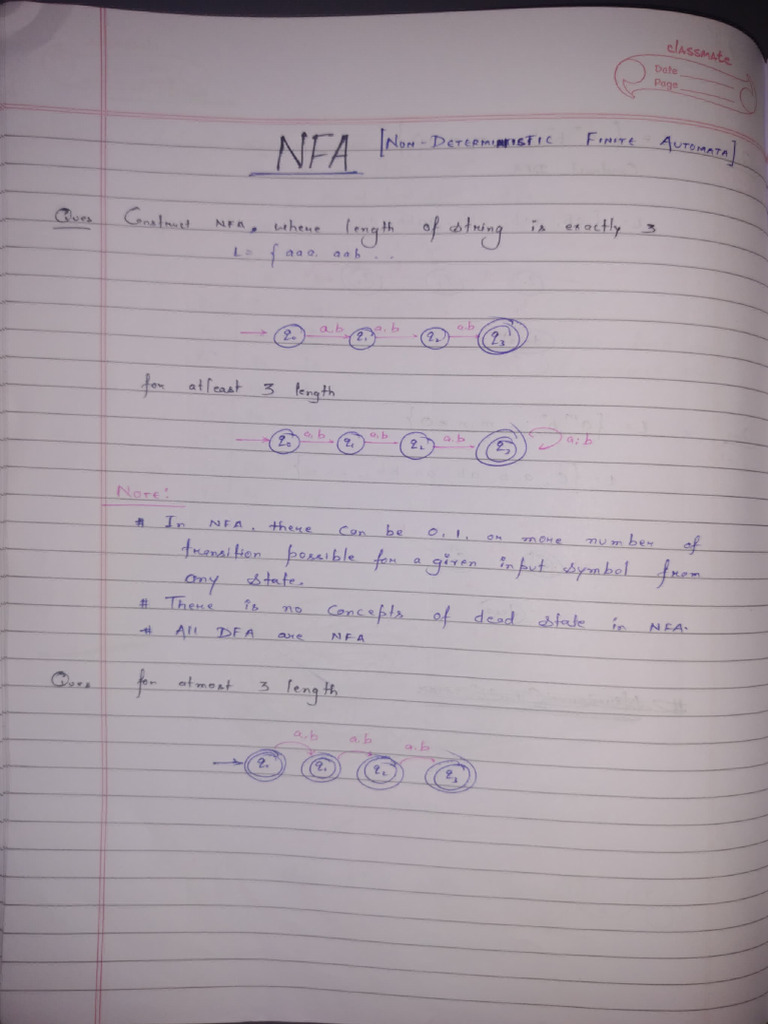 classmate
Date
Page
NFA [NON-DETERMINISTIC FINITE AUTOMATA]
Ques Construct NFA, where length of string is exactly 3
L = { aaa, aab ...
q0 a,b q1 a,b q2 a,b q3
for atleast 3 length
q0 a,b q1 a,b q2 a,b q3 a,b
Note:
# In NFA, there can be 0, 1, or more number of
transition possible for a given input symbol from
any state.
# There is no concepts of dead state in NFA.
# All DFA are NFA
Ques for atmost 3 length
a,b a,b a,b
q0 q1 q2 q3